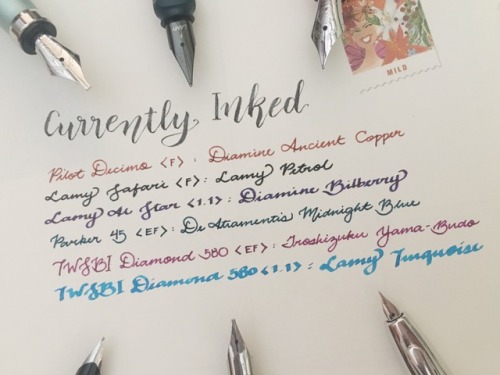 MILD
Currently Inked
Pilot Decimo <F> : Diamine Ancient Copper
Lamy Safari <F> : Lamy Petrol
Lamy Al Star <1.1> : Diamine Bilberry
Parker 45 <EF> : De Atramentis Midnight Blue
TWSBI Diamond 580 <EF> : Iroshizuku Yama-Budo
TWSBI Diamond 580 <1.1> : Lamy Turquoise